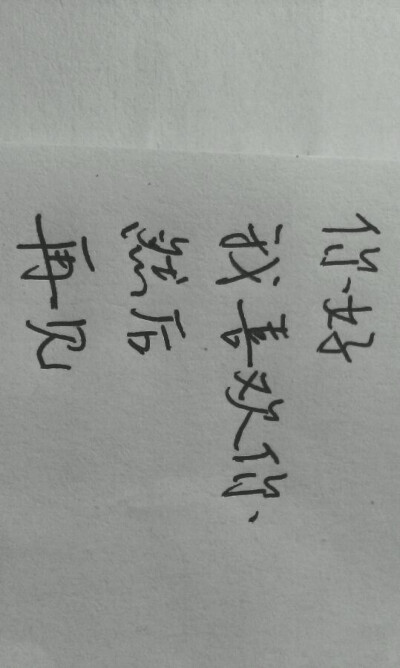 你好
我喜欢你
然后
再见